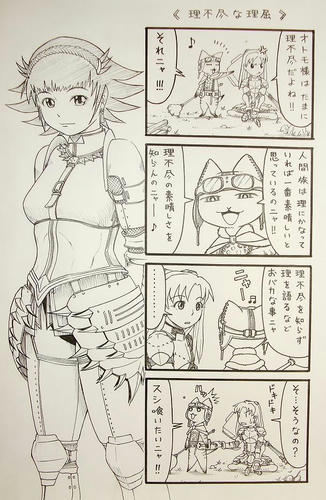 《理不尽な理屈》
オトモ様はたまに
理不尽だよね!!
それニャ!!!
人間族は理にかなって
いれば一番素晴しいと
思っているのニャ!!
理不尽の素晴しさを
知らんのニャー♪
理不尽を知らず
理を語るなど
おバカな事ニャ
ニャ〜♪
………
そ…そうなの?
ドキドキ
スシ喰いたいニャ!!